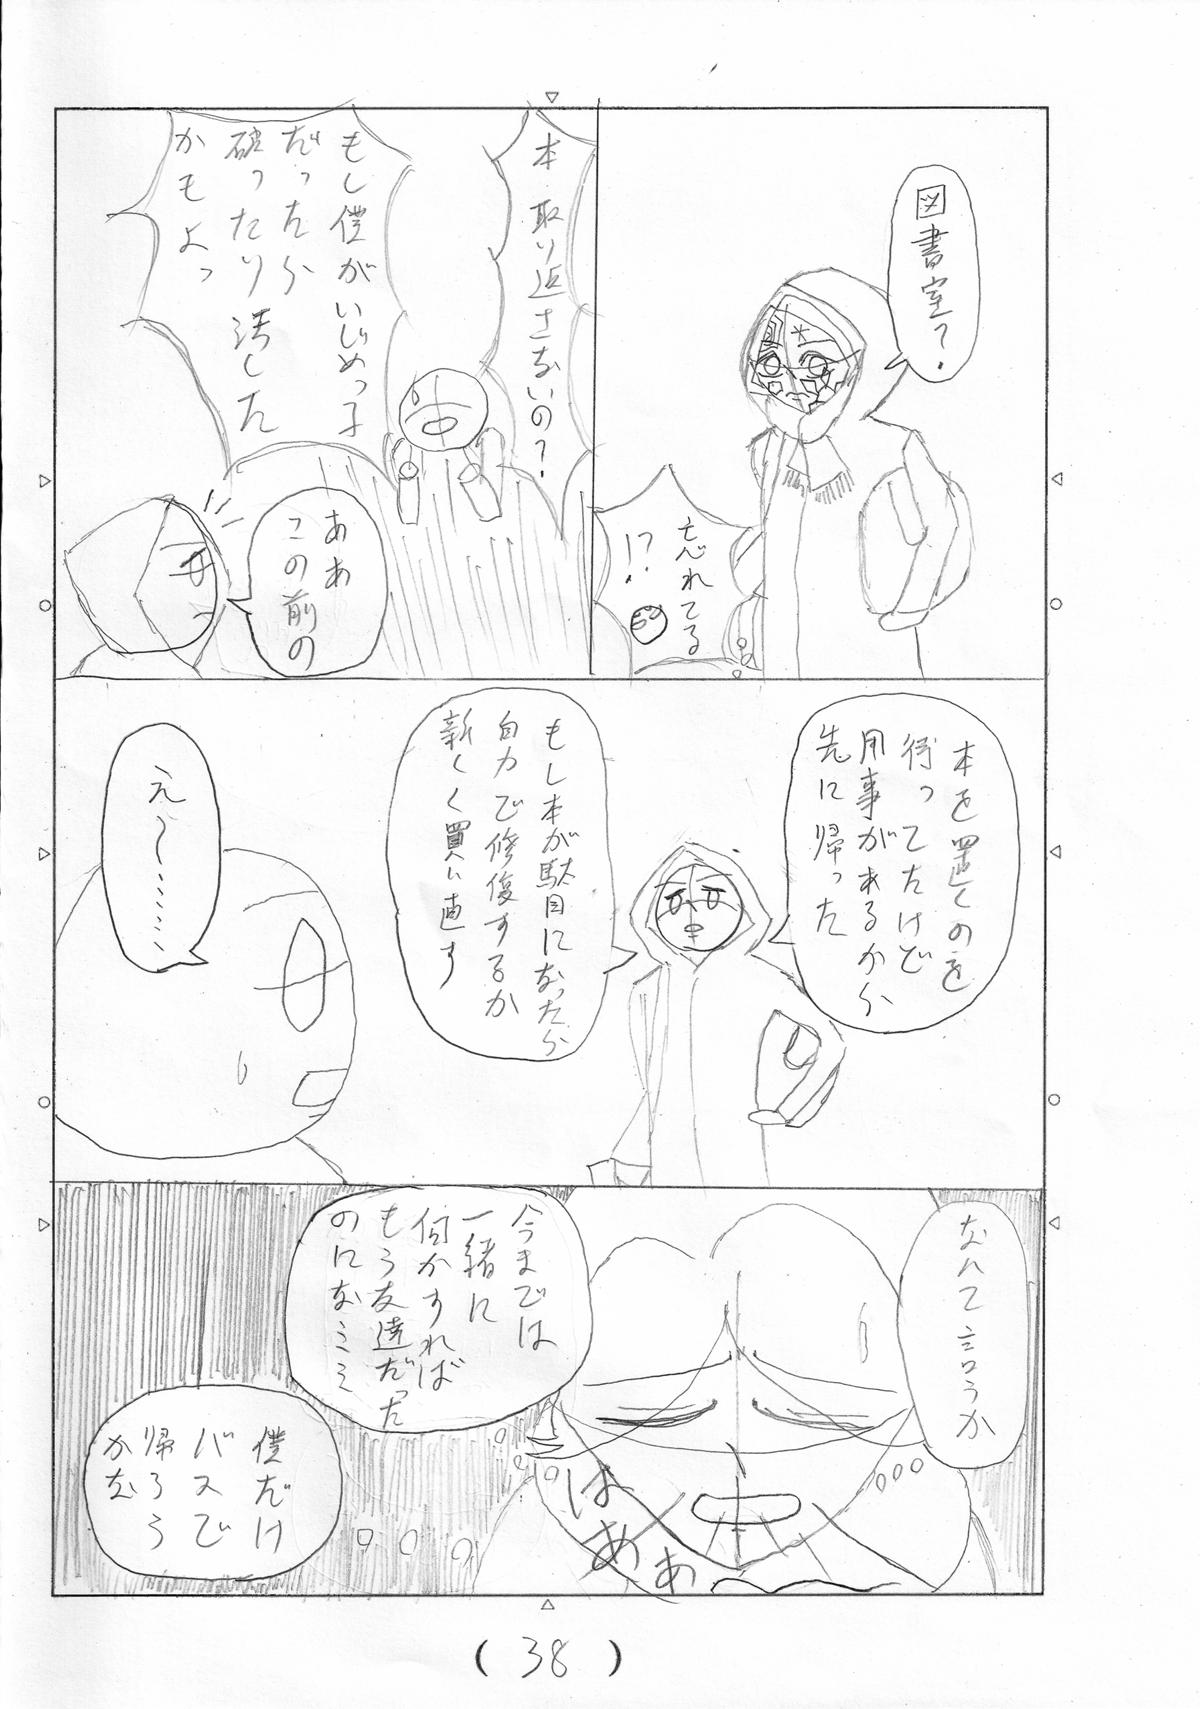 図書室？
忘れてる
！？
本取り返さないの？
もし僕がいじめっ子
だったら
破ったり汚した
かもよっ
ああ
この前の
本を置くのを
待ってたけど
用事があるから
先に帰った
もし本が駄目になったら
自力で修復するか
新しく買い直す
え〜………
なんて言うか
今までは
一緒に
何かすれば
もう友達だった
のになミミ
はぁぁ
僕だけ
バスで
帰ろう
かな
(38)